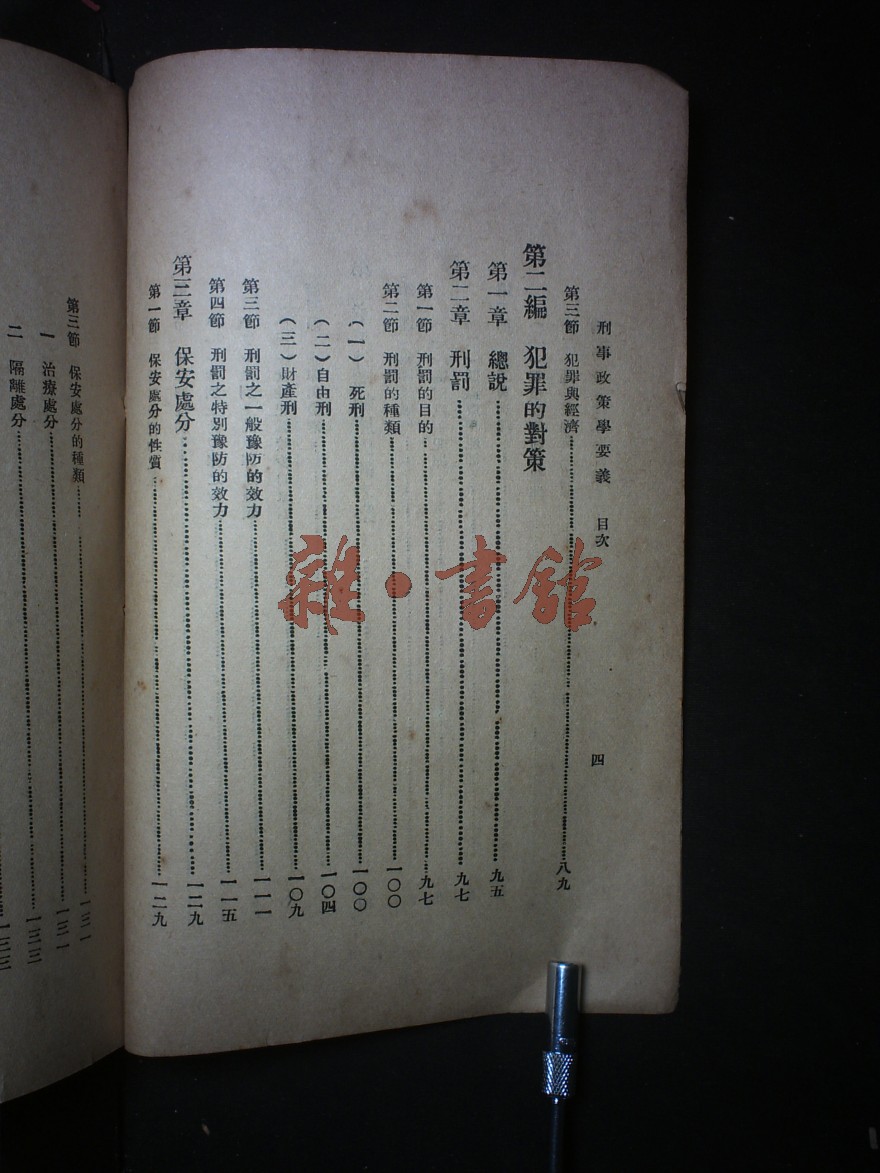 刑事政策學要義 目次 四
第三節 犯罪與經濟 八九
第二編 犯罪的對策
第一章 總說 九五
第二章 刑罰 九七
第一節 刑罰的目的 九七
第二節 刑罰的種類 一〇〇
(一) 死刑 一〇〇
(二) 自由刑 一〇四
(三) 財產刑 一〇九
第三節 刑罰之一般豫防的效力 一一一
第四節 刑罰之特別豫防的效力 一一五
第三章 保安處分 一二九
第一節 保安處分的性質 一二九
第三節 保安處分的種類 一三一
一 治療處分 一三一
二 隔離處分 一三三
一三三
雜·書館